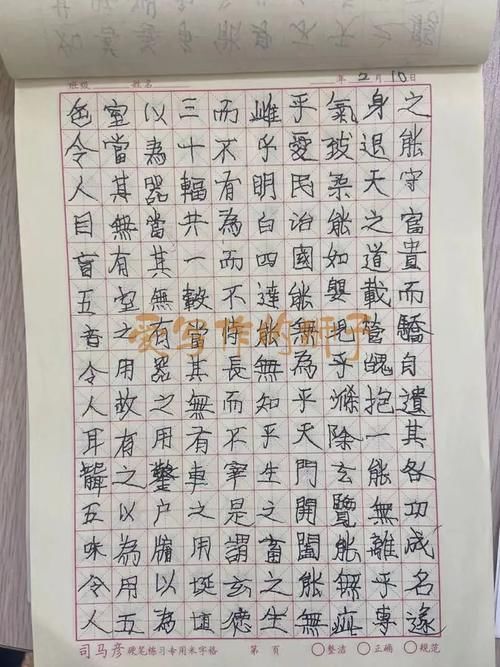 班级 姓名 年 2 月 10 日
之能守富貴而驕自遺其各功成名遂
身退天之道載營魄抱一能無離乎專
氣致柔能如嬰兒乎滌除玄覽能無疵
乎愛民治國能無為乎天門開闔能無
雌乎明白四達能無知乎生之畜之生
而不有為而不恃長而不宰是謂玄德
三十輻共一轂當其無有車之用埏埴
以為器當其無有器之用鑿户牖以為
室當其無有室之用故有之以為用五
色令人目盲五音令人耳聾五味令人
爱写作的狮子
司马彦 硬笔练习专用米字格 第 页 整洁 正确 规范